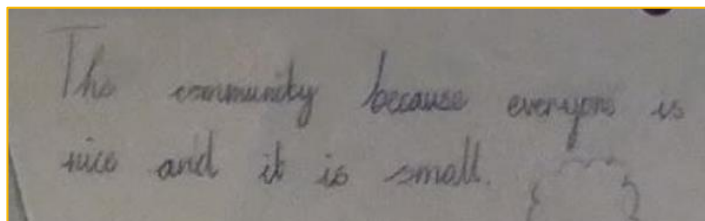 The community because everyone is
nice and it is small.